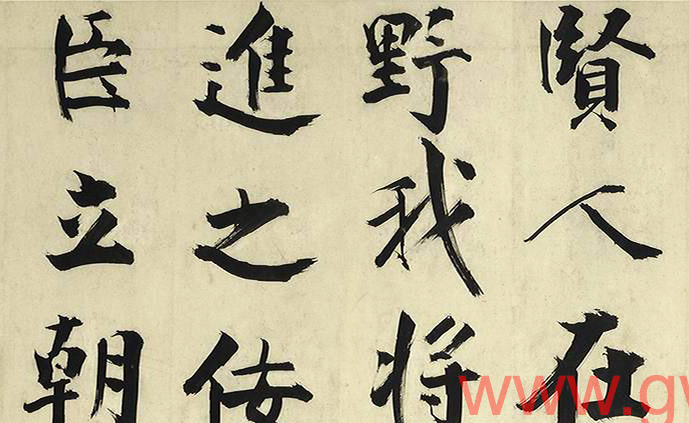 賢人在
野我將
進之佞
臣立朝
www.g